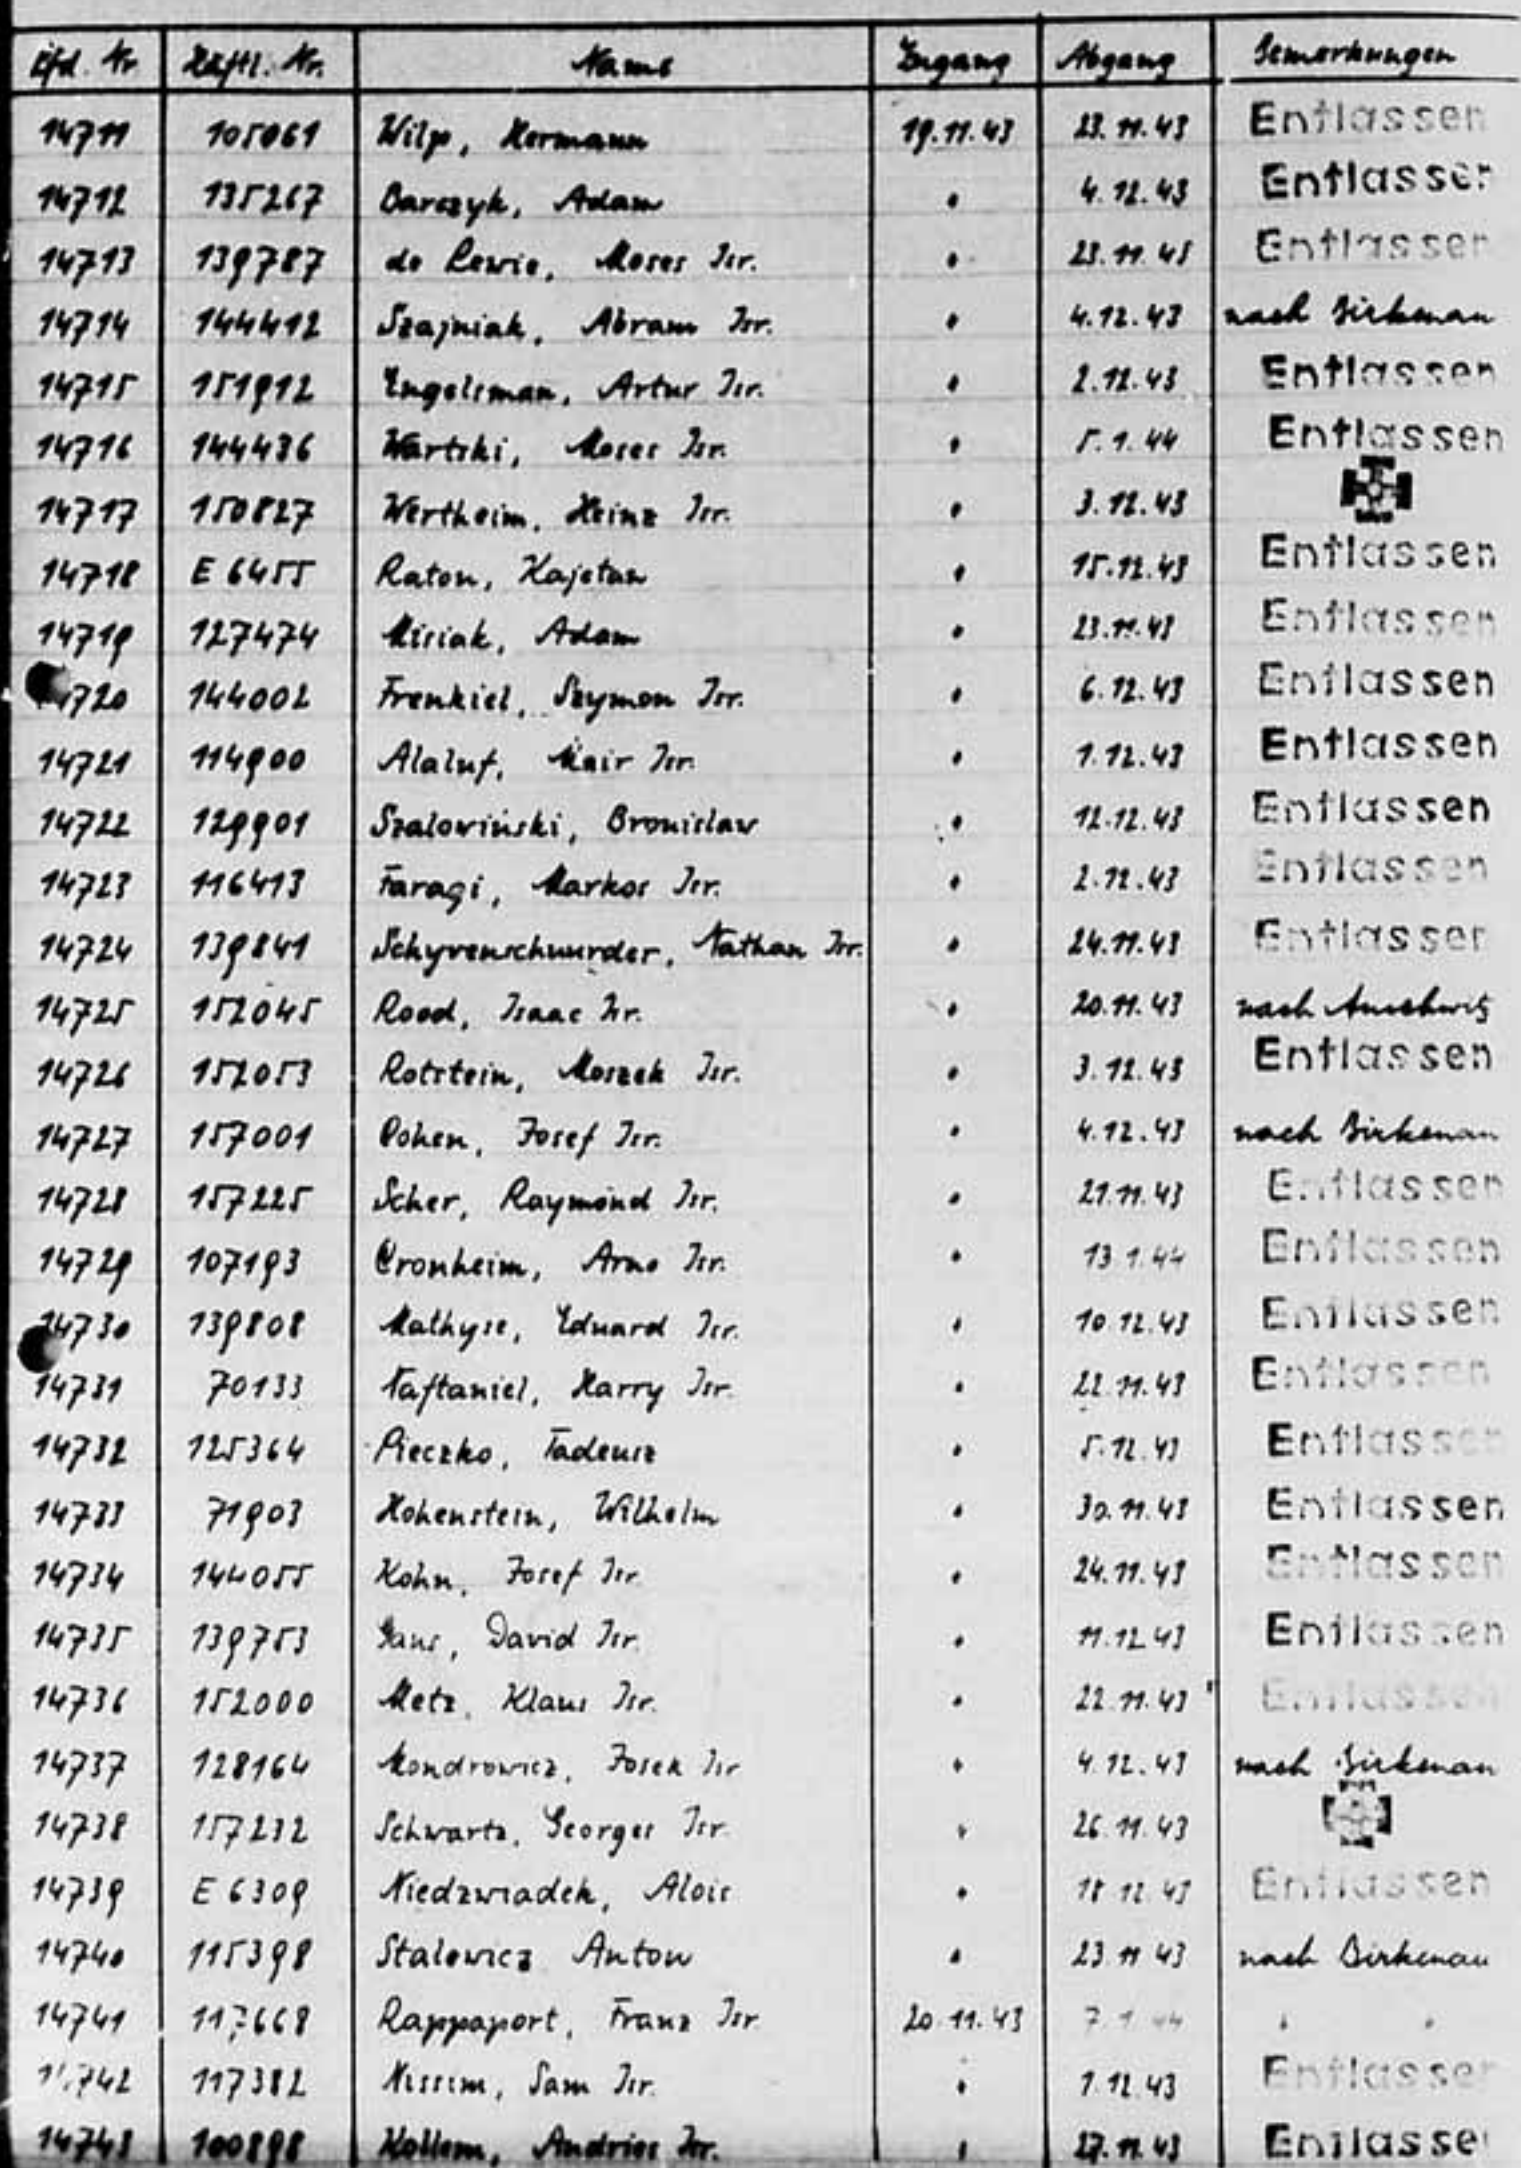 Lfd. Nr. Häftl. Nr. Name Zugang Abgang Bemerkungen
14711 105061 Wilp, Hermann 19.11.43 23.11.43 Entlassen
14712 135267 Barczyk, Adam " 4.12.43 Entlassen
14713 139787 de Lewie, Moses Isr. " 23.11.43 Entlassen
14714 144412 Szajniak, Abram Isr. " 4.12.43 nach Birkenau
14715 151912 Engelsman, Artur Isr. " 2.12.43 Entlassen
14716 144436 Wartski, Moses Isr. " 5.1.44 Entlassen
14717 150827 Wertheim, Heinz Isr. " 3.12.43
14718 E 6455 Raton, Kajetan " 15.12.43 Entlassen
14719 127474 Misiak, Adam " 23.11.43 Entlassen
14720 144002 Frenkiel, Szymon Isr. " 6.12.43 Entlassen
14721 114900 Alaluf, Mair Isr. " 1.12.43 Entlassen
14722 129901 Szalowiński, Bronislaw " 12.12.43 Entlassen
14723 116413 Faragi, Markos Isr. " 2.12.43 Entlassen
14724 139841 Schyvenschuurder, Nathan Isr. " 24.11.43 Entlassen
14725 152045 Rood, Isaac Isr. " 20.11.43 nach Auschwitz
14726 152053 Rotstein, Moszek Isr. " 3.12.43 Entlassen
14727 157001 Cohen, Josef Isr. " 4.12.43 nach Birkenau
14728 157225 Scher, Raymond Isr. " 21.11.43 Entlassen
14729 107193 Cronheim, Arno Isr. " 13.1.44 Entlassen
14730 139808 Mathyse, Eduard Isr. " 10.12.43 Entlassen
14731 70133 Naftaniel, Harry Isr. " 22.11.43 Entlassen
14732 125364 Pieczko, Tadeusz " 5.12.43 Entlassen
14733 71903 Hohenstein, Wilhelm " 30.11.43 Entlassen
14734 144055 Kohn, Josef Isr. " 24.11.43 Entlassen
14735 139753 Gans, David Isr. " 11.12.43 Entlassen
14736 152000 Metz, Klaus Isr. " 22.11.43 Entlassen
14737 128164 Mondrowicz, Josek Isr. " 4.12.43 nach Birkenau
14738 157232 Schwartz, Georges Isr. " 26.11.43
14739 E 6309 Niedzwiadek, Alois " 18.12.43 Entlassen
14740 115398 Stalewicz Anton " 23.11.43 nach Birkenau
14741 117668 Rappaport, Franz Isr. 20.11.43 7.1.44 " "
14742 117382 Nissim, Sam Isr. " 1.12.43 Entlassen
14743 100898 Kollem, Andries Isr. " 27.11.43 Entlassen